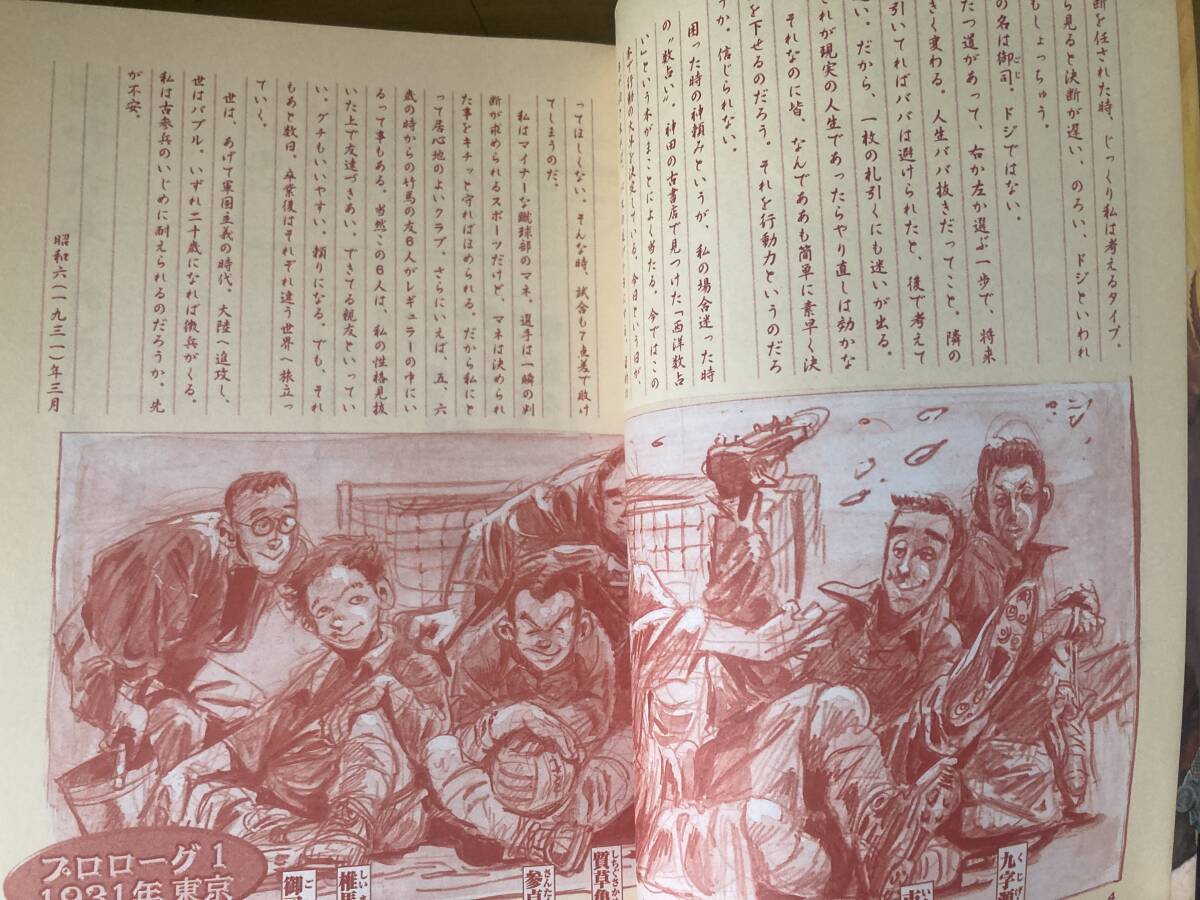 断を任された時、じっくり私は考えるタイプ。
ら見ると決断が遅い、のろい、ドジといわれ
もしょっちゅう。
の名は御司。ドジではない。
ごじ
たつ道があって、右か左か選ぶ一歩で、将来
きく変わる。人生ババ抜きだってこと。隣の
引いてればババは避けられたと、後で考えて
い。だから、一枚の札引くにも迷いが出る。
れが現実の人生であったらやり直しは効かな
それなのに皆、なんでああも簡単に素早く決
を下せるのだろう。それを行動力というのだろ
うか。信じられない。
困った時の神頼みというが、私の場合迷った時
の“数占い”。神田の古書店で見つけた「西洋数占
い」という本がまことによく当たる。今ではこの
ってほしくない。そんな時、試合も7点差で敗け
てしまうのだ。
私はマイナーな蹴球部のマネ。選手は一瞬の判
断が求められるスポーツだけど、マネは決められ
た事をキチッと守ればほめられる。だから私にと
って居心地のよいクラブ。さらにいえば、五、六
歳の時からの竹馬の友6人がレギュラーの中にい
るって事もある。当然この6人は、私の性格見抜
いた上で友達づきあい。できてる親友といってい
い。グチもいいやすい。頼りになる。でも、それ
もあと数日。卒業後はそれぞれ違う世界へ旅立っ
ていく。
世は、あげて軍国主義の時代。大陸へ進攻し、
世はバブル。いずれ二十歳になれば徴兵がくる。
私は古参兵のいじめに耐えられるのだろうか。先
が不安。
昭和六(一九三一)年三月
九字源
くじげ
質草亀
しちぐさかめ
参貞
さんた
椎馬
しいま
御
ご
プロローグ1
1931年 東京
4